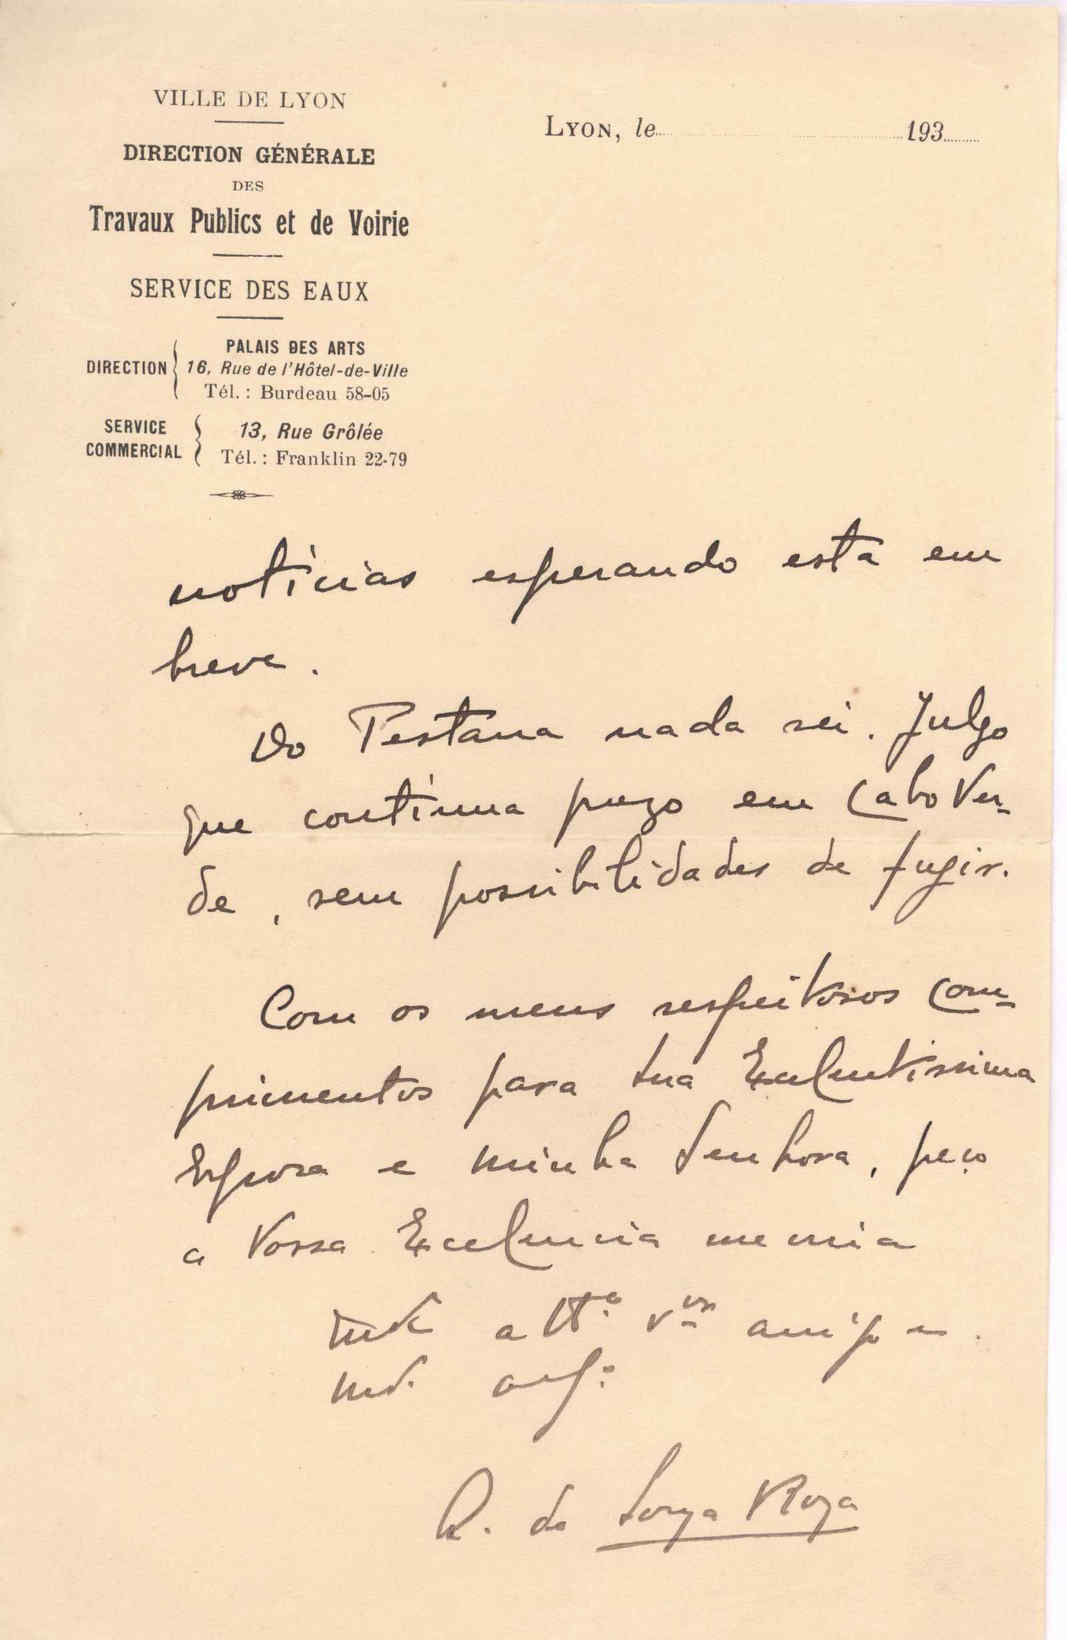 VILLE DE LYON
DIRECTION GÉNÉRALE
DES
Travaux Publics et de Voirie
SERVICE DES EAUX
DIRECTION
PALAIS DES ARTS
16, Rue de l'Hôtel-de-Ville
Tél. : Burdeau 58-05
SERVICE
COMMERCIAL
13, Rue Grôlée
Tél. : Franklin 22-79
LYON, le 193
notícias esperando esta em
breve.
Do Pestana nada sei. Julgo
que contínua prezo em Cabo Ver-
de, sem possibilidades de fugir.
Com os meus respeitosos com-
primentos para sua Excelentíssima
Esposa e minha Senhora, peço
a Vossa Excelencia me creia
att.º v.ºr amigo
A. de Souza Roza